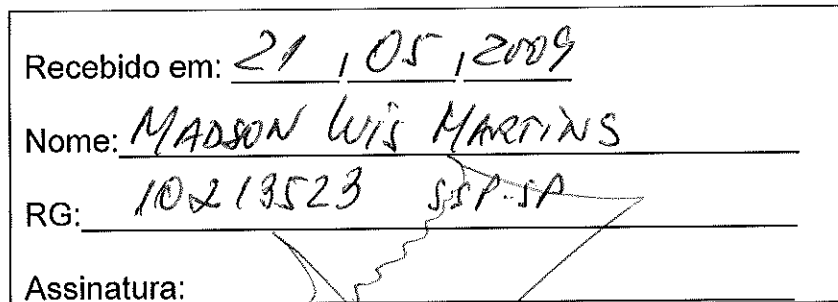 Recebido em: 21 / 05 / 2009
Nome: MADSON LUIS MARTINS
RG: 10213523 SSP-SP
Assinatura: